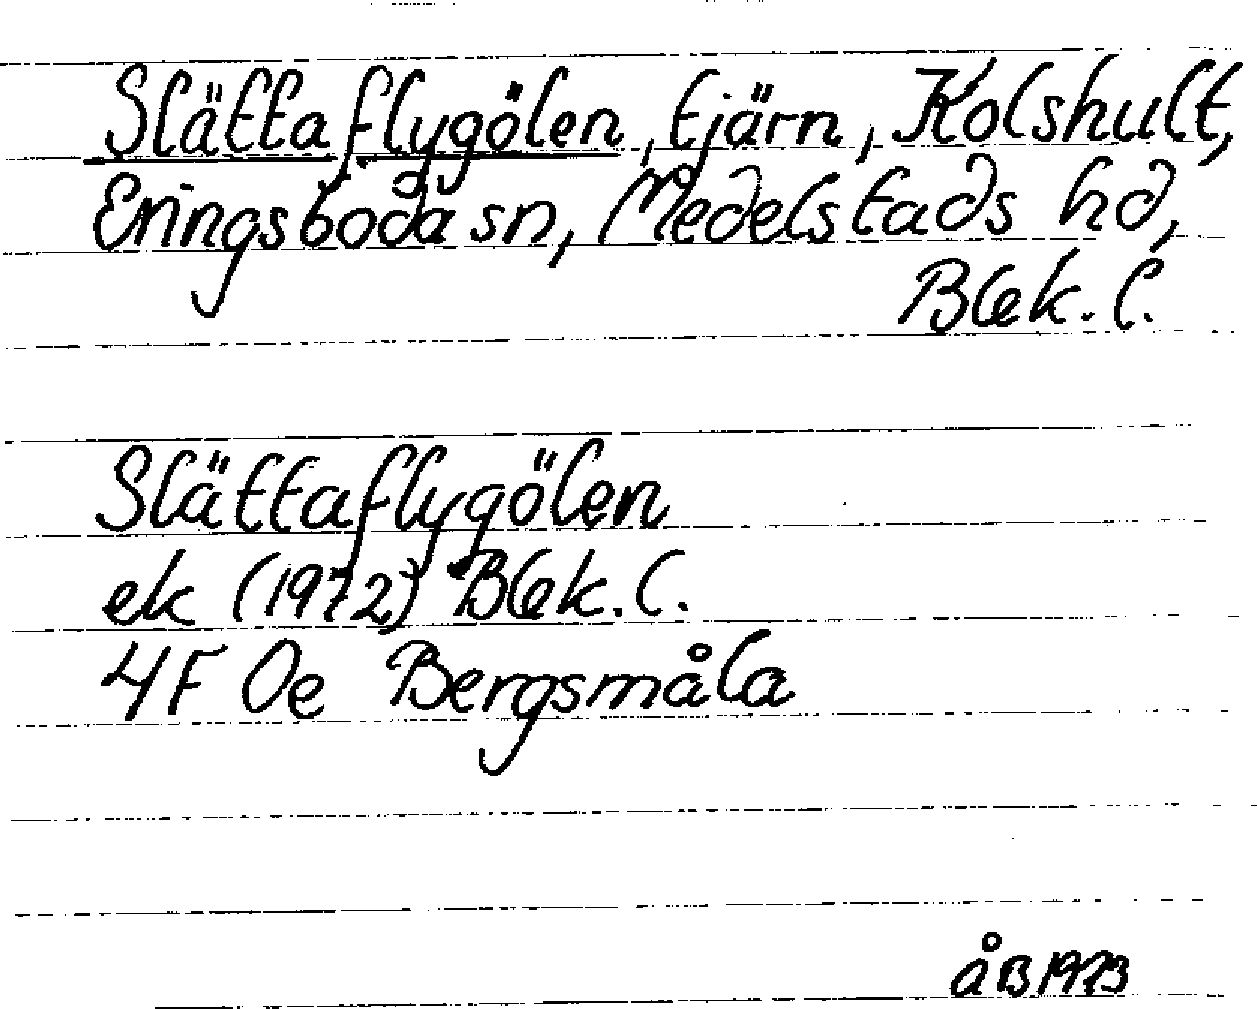 Slättaflygölen, tjärn, Kolshult,
Eringsboda sn, Medelstads hd,
Blek. l.
Slättaflygölen
ek (1972) Blek. l.
4F Oe Bergsmåla
åB 1973